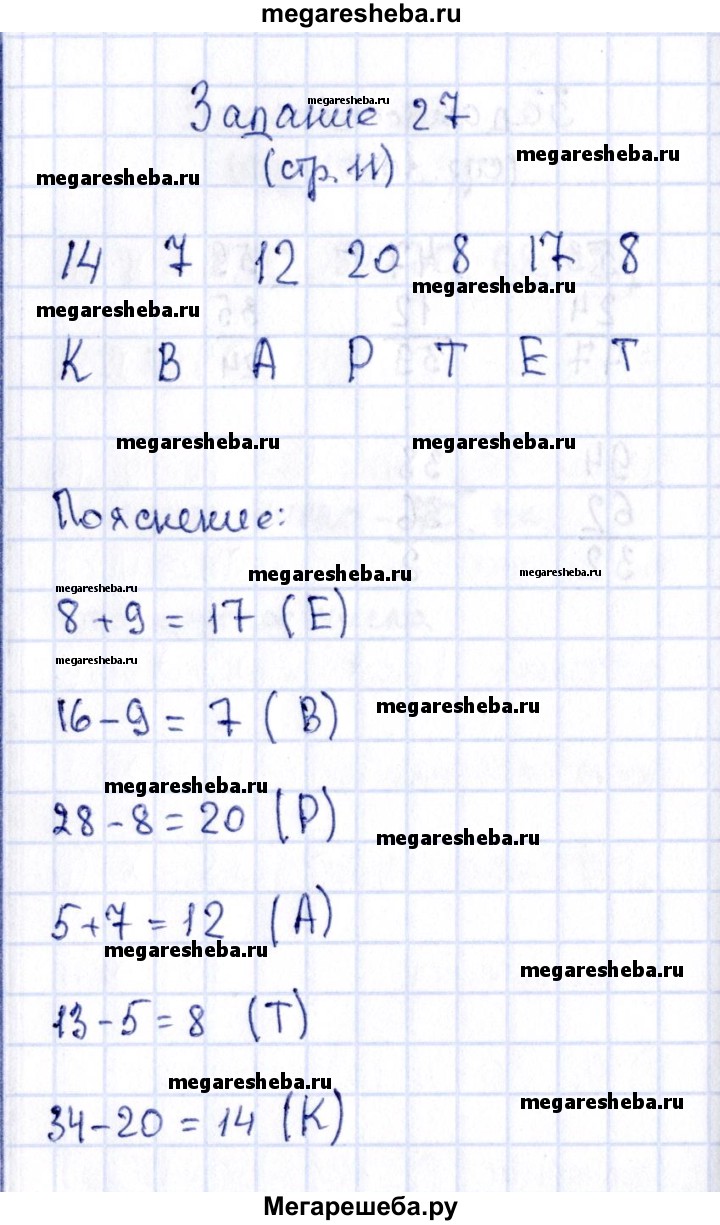 megaresheba.ru
megaresheba.ru
Задание 27
megaresheba.ru
(стр. 11)
megaresheba.ru
14 7 12 20 8 17 8
megaresheba.ru
megaresheba.ru
К В А Р Т Е Т
megaresheba.ru megaresheba.ru
Пояснение:
megaresheba.ru megaresheba.ru
megaresheba.ru
8 + 9 = 17 (Е)
megaresheba.ru
16 - 9 = 7 (В)
megaresheba.ru
megaresheba.ru
28 - 8 = 20 (Р)
megaresheba.ru
5 + 7 = 12 (А)
megaresheba.ru
megaresheba.ru
13 - 5 = 8 (Т)
megaresheba.ru
megaresheba.ru
34 - 20 = 14 (К)
Мегарешеба.ру